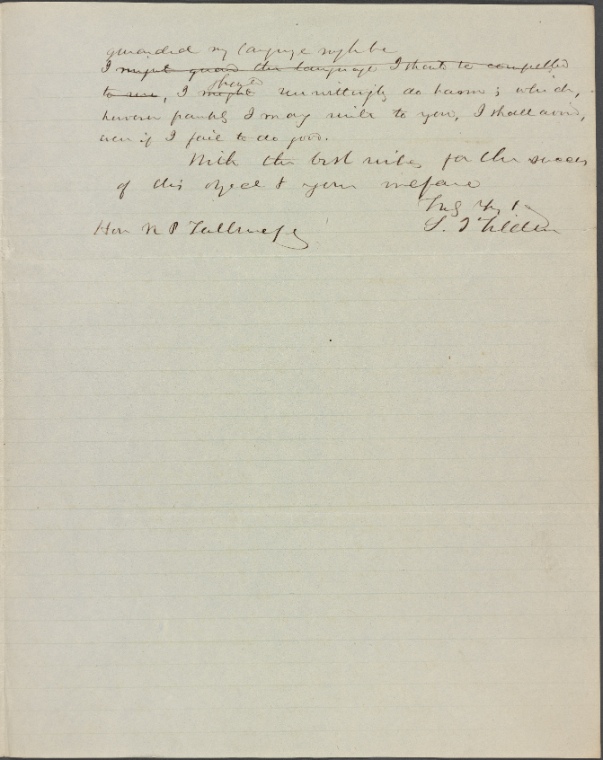 guarded my language might be
I might guard the language I should be compelled
to use, I might should unwittingly do harm; which,
however frankly I may write to you, I shall avoid,
even if I fail to do good.
With the best wishes for the success
of this object & your welfare
Truly Yrs
S. J Tilden
Hon N P Tallmadge